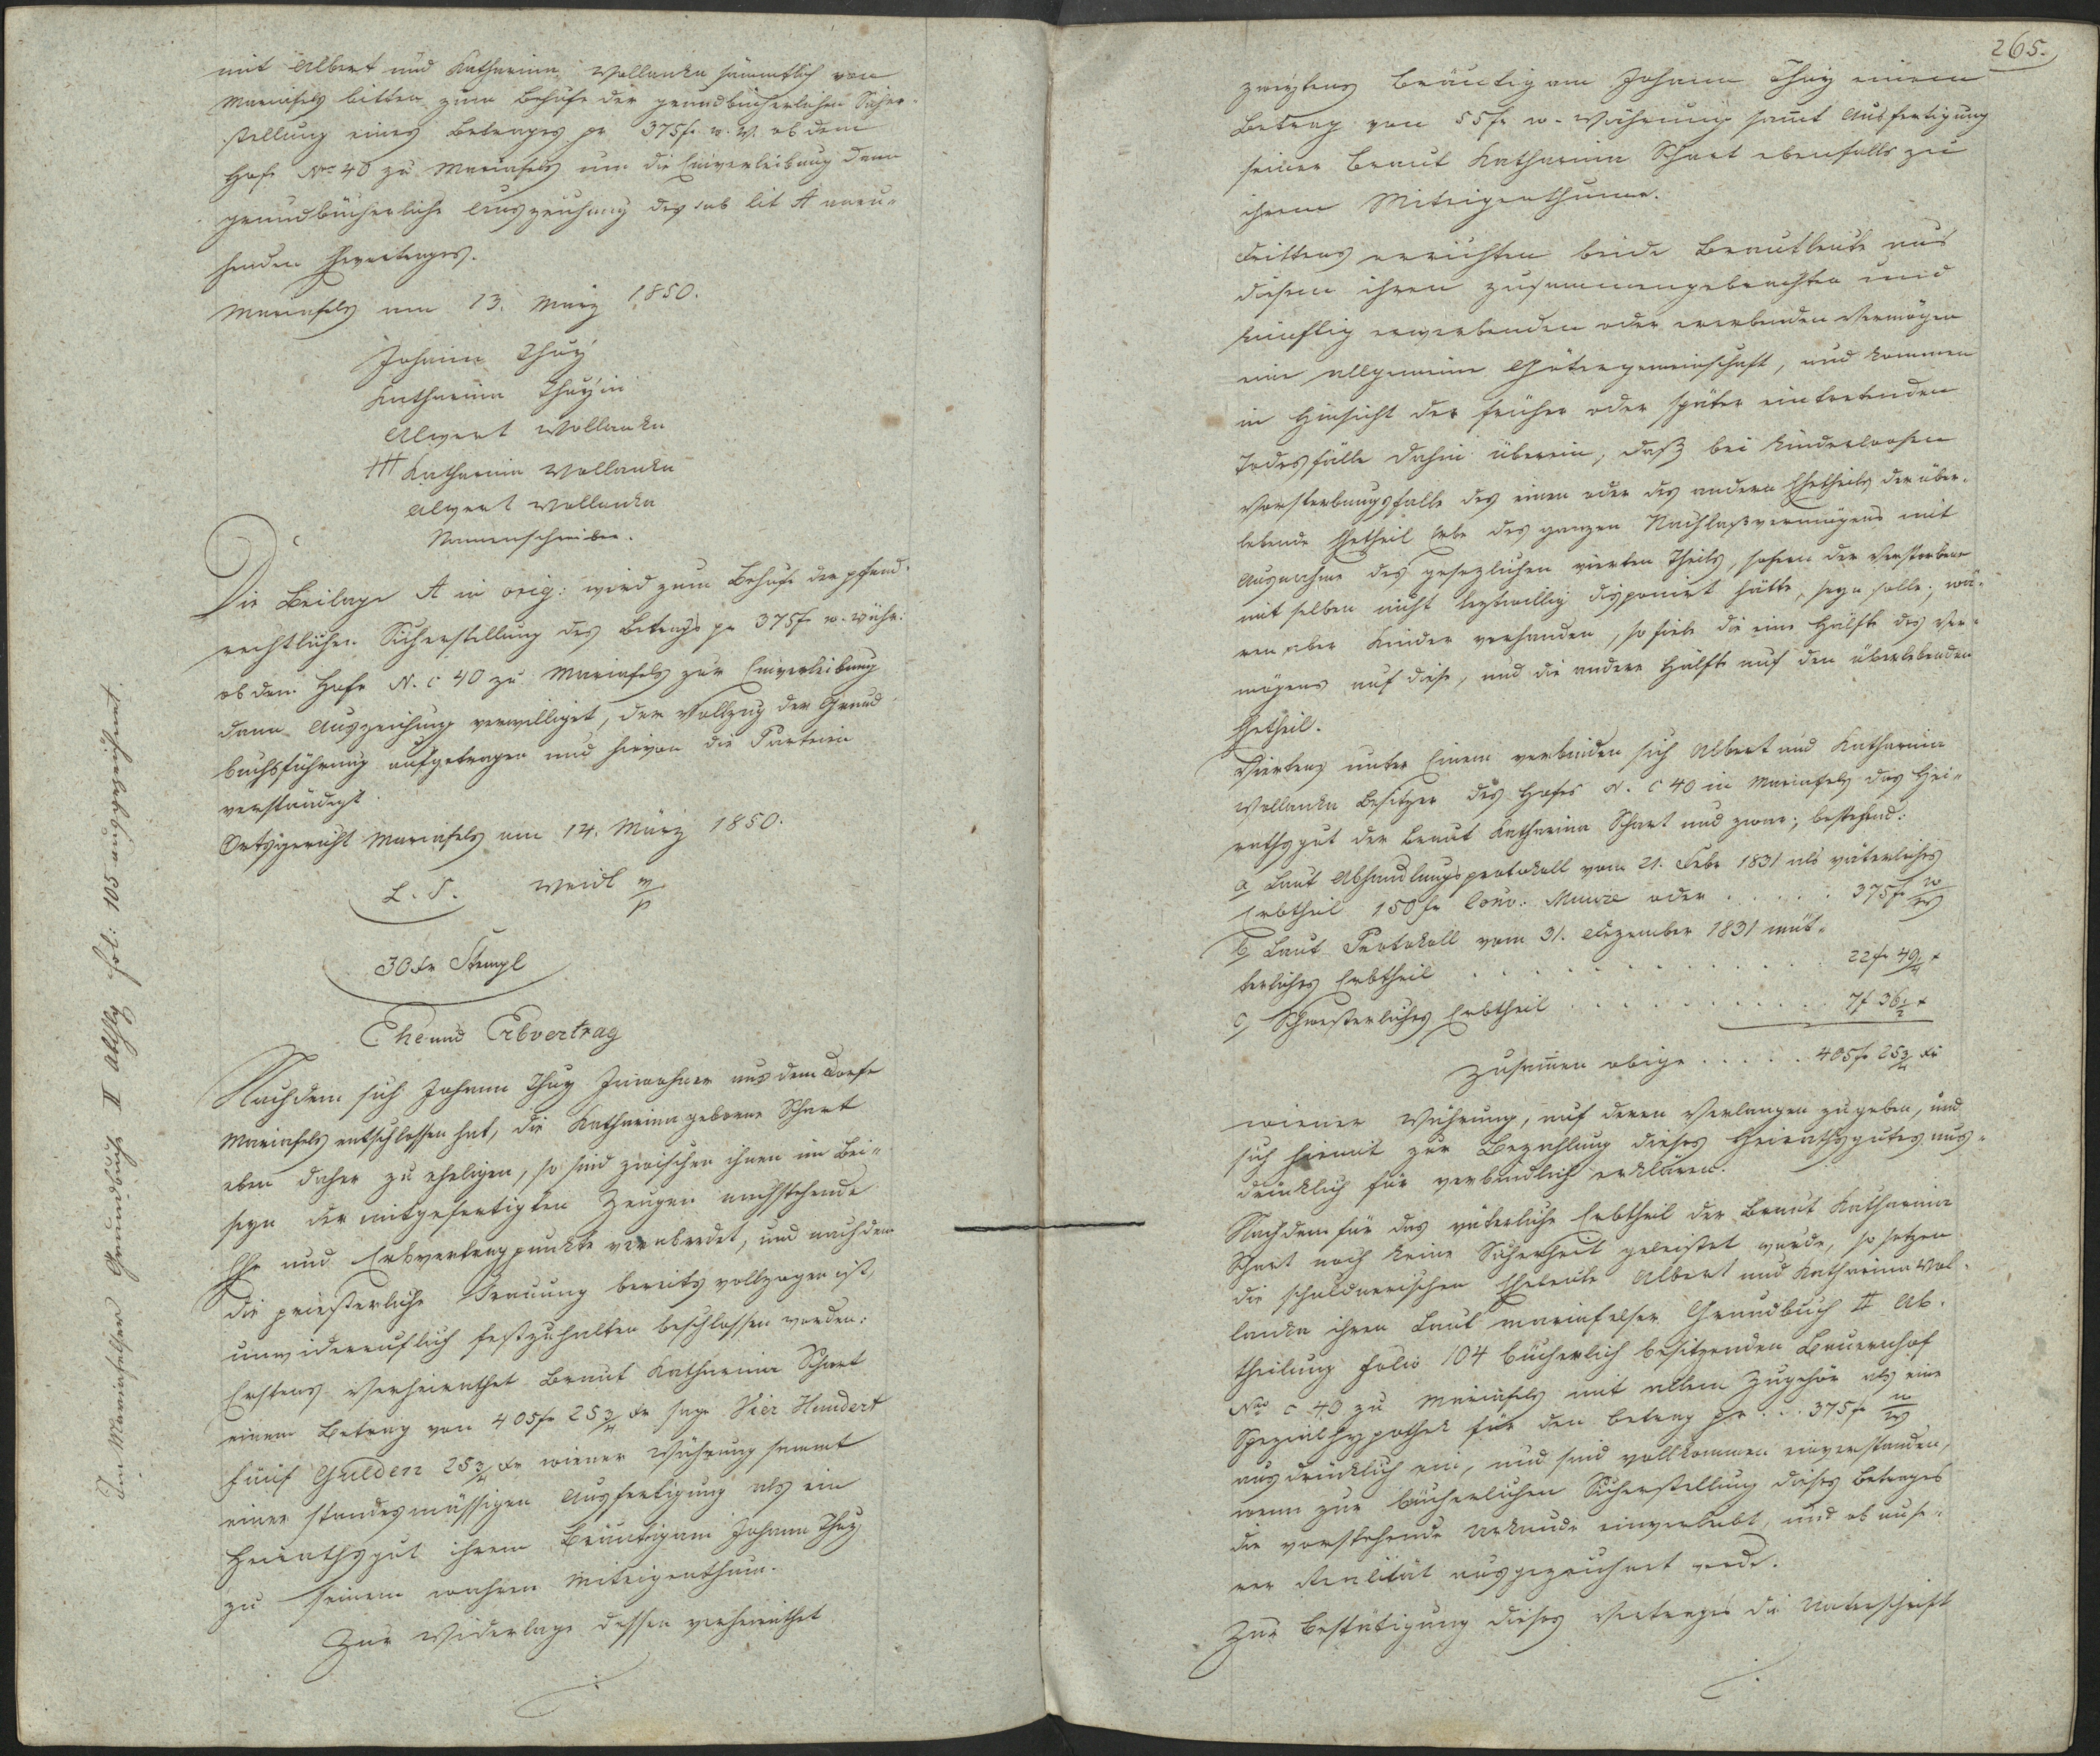 mit Albert und Katharina Wollanka sämmtlich von
Mariafels bitten zum Behufe der grundbücherlichen Sicher-
stellung eines Betrages pr 375f. w. W. ob dem
Hofe Nro 40 zu Mariafels um die Einverleibung dann
grundbücherliche Auszeichnung des sub lit A anru-
henden Ehevertrages.
Mariafels am 13. März 1850.
Johann Thuÿ
Katharina Thuÿin
Alwert Wollanka
+++ Katharina Wollanka
Alwert Wollanka
Namenschreiber.
Die Beilage A in orig: wird zum Behufe der pfand-
rechtlichen Sicherstellung des Betrags pr 375f w. Währ:
ob dem Hofe N. C 40 zu Mariafels zur Einverleibung
dann Auszeichnung verwilliget, der Vollzug der Grund
buchsführung aufgetragen und hievon die Parteien
verständigt.
Ortsgericht Mariafels am 14. März 1850.
L. S. Weidl m/p
30 Kr Stempl
Ehe und Erbvertrag
Nachdem sich Johann Thuy Inwohner aus dem Dorfe
Mariafels entschlossen hat, die Katharina geborne Schart
eben daher zu eheligen, so sind zwischen ihnen im Bei-
seyn der mitgefertigten Zeugen nachstehende
Ehe und Erbvertragpunkte verabredet, und nachdem
die priesterliche Trauung bereits vollzogen ist,
unwiderruflich festzuhalten beschlossen worden:
Erstens verheirathet Braut Katharina Schart
einem Betrag von 405f 25 3/4 Kr sage Vier Hundert
Fünf Gulden 25 3/4 Kr wiener Währung sammt
einer standesmässigen Ausfertigung als ein
Heirathsgut ihrem Bräutigam Johann Thuy
zu seinem wahren Miteigenthum.
Zur Widerlage dessen verheirathet
Im Mariafelser Grundbuch II Abthlg Fol: 105 ausgezeichnet.
265.
zweytens Bräutigam Johann Thuy einem
Betrag von 55f w. Währung samt Ausfertigung
seiner Braut Katharina Schart ebenfalls zu
ihrem Miteigenthume.
Drittens errichten beide Brautleute aus
diesem ihren zusammengebrachten und
künftig erwerbenden oder ererbenden Vermögen
eine allgemeine Gütergemeinschaft, und kommen
in Hinsicht der früher oder später eintretenden
Todesfälle dahin überein, daß bei kinderloosen
Vorsterbungsfalle des einen oder des andern Ehetheils der über-
lebende Ehetheil Erbe des ganzen Nachlaßvermögens mit
Ausnahme des gesezlichen vierten Theils, sofern der Verstorbene
mit selben nicht leztwillig disponirt hätte, seyn solle; wä-
ren aber Kinder vorhanden, so fiele die eine Hälfte des Ver-
mögens auf diese, und die andere Hälfte auf den überlebenden
Ehetheil.
Viertens unter Einem verbinden sich Albert und Katharina
Wollanka Besitzer des Hofes N. C 40 in Mariafels das Hei-
rathsgut der Braut Katharina Schart und zwar; bestehend:
a, Laut Abhandlungsprotokoll vom 21. Febr 1831 als väterliches
Erbtheil 150 fr Conv: Münze oder . . . . . 375f W/W
b, Laut Protokoll vom 31. Dezember 1831 müt-
terliches Erbtheil . . . . . . . . . . 22f 49 1/4 x
c, Schwesterliches Erbtheil . . . . . . . . 7f 36 1/2 x
Zusammen obige . . . . . 405f 25 3/4 Kr
wiener Währung, auf deren Verlangen zugeben, und
sich hiemit zur Bezahlung dieses Heirathsgutes aus-
drücklich für verbindlich erklären.
Nachdem für das väterliche Erbtheil der Braut Katharina
Schart noch keine Sicherheit geleistet wurde, so setzen
die schuldnerischen Eheleute Albert und Katharina Wol-
lanka ihren Laut mariafelser Grundbuch II Ab-
theilung Folio 104 bücherlich besitzenden Bauernhof
Nro C 40 zu Mariafels mit allem Zugehör als eine
Spezialhypothek für den Betrag pr . . . 375f W/W
ausdrücklich ein, und sind vollkommen einverstanden,
wenn zur bücherlichen Sicherstellung dieses Betrages
die vorstehende Urkunde einverleibt, und ob unse-
rer Realität ausgezeichnet werde.
Zur Bestätigung dieses Vertrages die Unterschrift